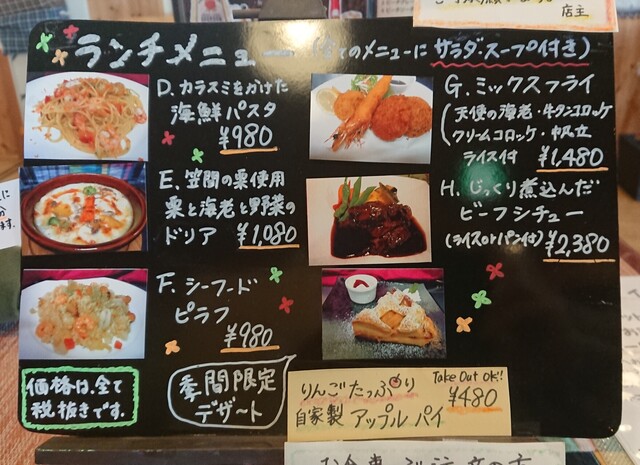 ランチメニュー (全てのメニューにサラダ・スープ付き)
店主
D. カラスミをかけた
海鮮パスタ
¥980
E. 笠間の栗使用
栗と海老と野菜の
ドリア ¥1,080
F. シーフード
ピラフ
¥980
価格は、全て
税抜きです。
季間限定
デザート
G. ミックスフライ
(天使の海老・牛タンコロッケ
クリームコロッケ・帆立
ライス付 ¥1,480
H. じっくり煮込んだ
ビーフシチュー
(ライスorパン付) ¥2,380
りんごたっぷり
Take Out OK!!
自家製 アップルパイ
¥480